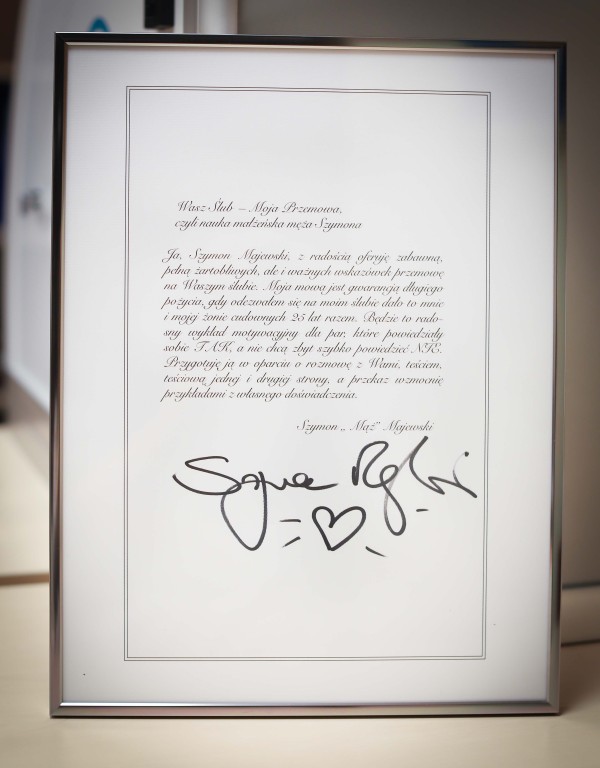 Wasz Ślub – Moja Przemowa,
czyli nauka małżeńska męża Szymona
Ja, Szymon Majewski, z radością oferuję zabawną,
pełną żartobliwych, ale i ważnych wskazówek przemowę
na Waszym ślubie. Moja mowa jest gwarancją długiego
pożycia, gdy odezwałem się na moim ślubie dało to mnie
i mojej żonie cudownych 25 lat razem. Będzie to rado-
sny wykład motywacyjny dla par, które powiedziały
sobie TAK, a nie chcą zbyt szybko powiedzieć NIE.
Przygotuję ją w oparciu o rozmowę z Wami, teściem,
teściową jednej i drugiej strony, a przekaz wzmocnię
przykładami z własnego doświadczenia.
Szymon „Mąż” Majewski